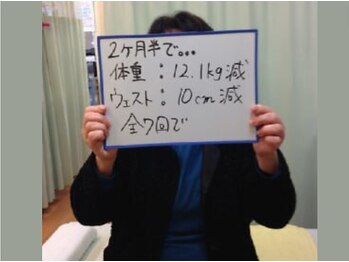 2ヶ月半で。。。
体重：12.1kg減
ウェスト：10cm減
全7回で